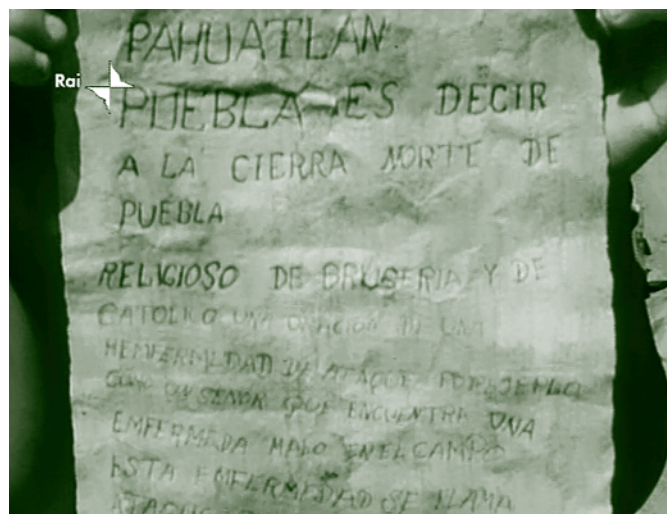 PAHUATLAN
Rai
PUEBLA ES DECIR
A LA CIERRA NORTE DE
PUEBLA
RELIGIOSO DE BRUGERIA Y DE
CATOLICO UNA ORACION DE UNA
HEMFERMEDAD DE ATAQUE POR EJEMPLO
COMO UN SENOR QUE ENCUENTRA UNA
EMFERMEDA MALO EN EL CAMPO
ESTA EMFERMEDAD SE LLAMA
ATAQUE